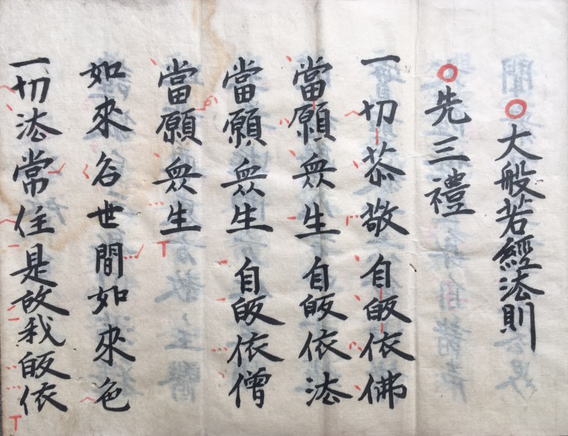 大般若經法則
先三禮
一切恭敬自皈依佛
當願衆生自皈依法
當願衆生自皈依僧
當願衆生
如來名世間如來色
一切法常住是故我皈依